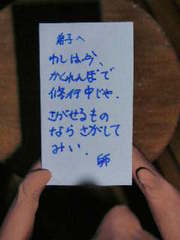 弟子へ
わしは今、
かくれんぼで
修行中じゃ。
さがせるもの
ならさがして
みい.
師